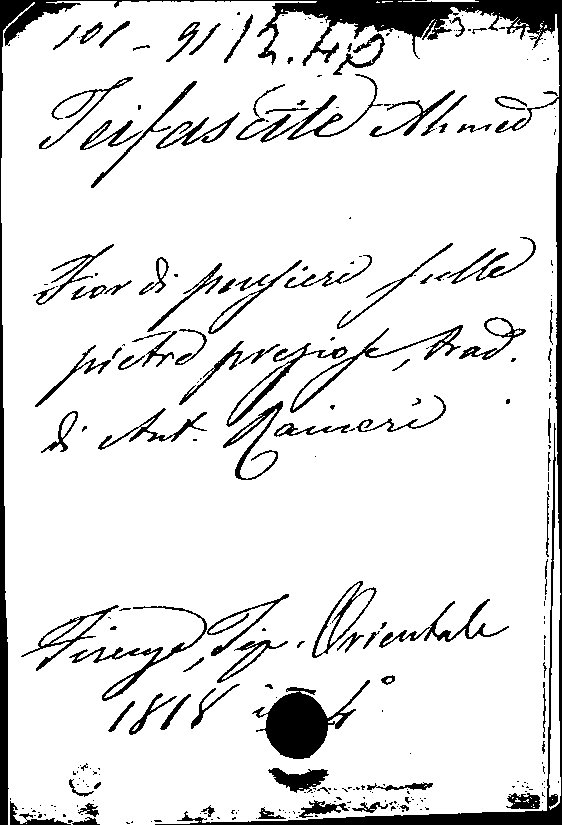 101 - 91 12.40
Teifascite Ahmed
Fior di pensieri sulle
pietre preziose, trad.
di Ant. Raineri
Firenze, Tip. Orientale
1818 in 4°